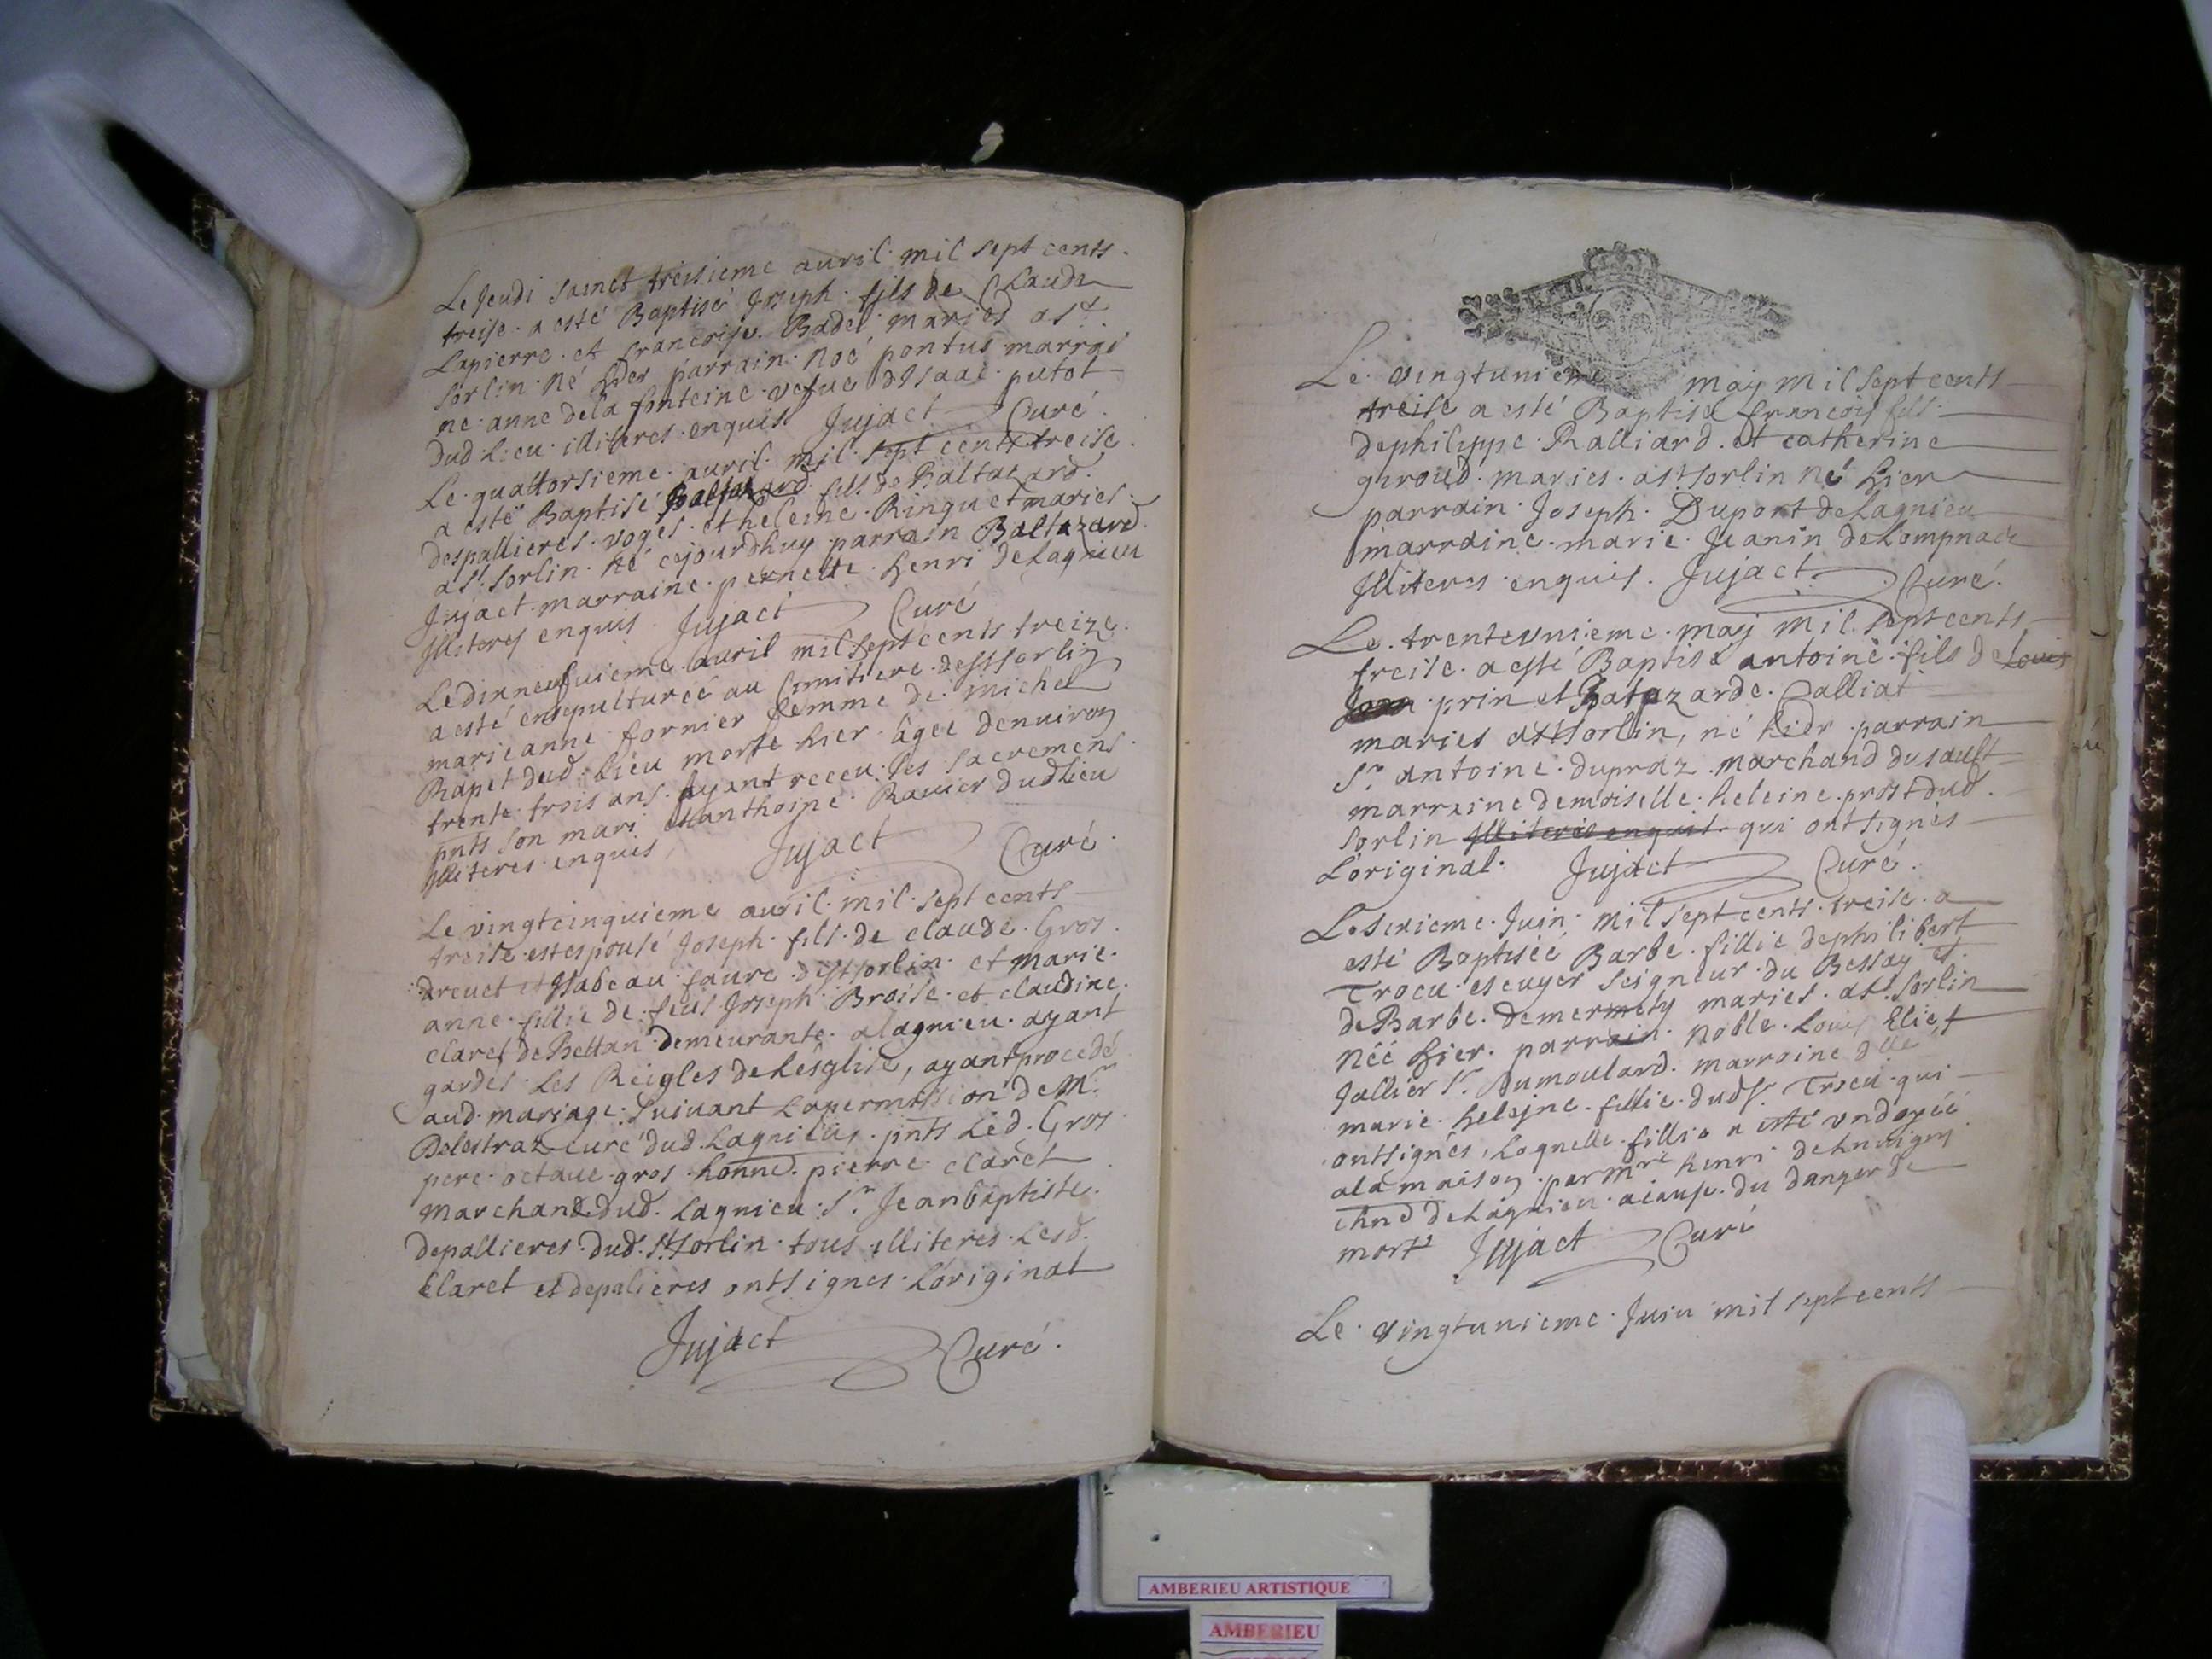 Le Jeudi sainct treisieme auril mil sept cents
treise a esté Baptisé Joseph fils de Claude
Lapierre et francoise Badel maries a St
Sorlin né hier parrain Noé pontus marrai
ne anne dela fonteine vefue disaac putot
dud lieu illiteres enquis Jujact Curé
Le quattorsieme auril mil sept cents treise
a esté Baptisé Baltazard fils de Baltazard
despallieres voges et heleine Ringuet maries
a St Sorlin né cejourdhuy parrain Baltazard
Jujact marraine pernette henri de Lagnieu
Illiteres enquis Jujact Curé
Le dixneufuieme auril mil sept cents treize
a esté ensepulturée au Cimitiere de St Sorlin
marieanne fornier femme de michel
Rapet dud lieu morte hier âgée denuiron
trente trois ans ayant receu les sacremens
pnts son mari et anthoine Rauier dud lieu
Illiteres enquis Jujact Curé
Le vingtcinquieme auril mil sept cents
treise est espousé Joseph fils de claude Gros
dreuet et Isabeau faure de St Sorlin et marie
anne fillie de feus Joseph Broise et claudine
claret de Bettan demeurante a lagnieu ayant
gardés les Reigles de Lesglise, ayant procedé
aud mariage suiuant la permission de Mr
Delestraz curé dud Lagnieu pnts Led Gros
pere octaue gros honne pierre claret
marchand dud Lagnieu Sr Jeanbaptiste
depallieres dud St Sorlin tous illiteres Lesd
Claret et depalieres ont signes L'original
Jujact Curé
Le vingtunieme may mil sept cents
treise a esté Baptisé francois fils
de philippe Ralliard et catherine
giroud maries a St Sorlin né hier
parrain Joseph Duport de Lagnieu
marraine marie Jeanin de Lompnas
Illiteres enquis Jujact Curé
Le trenteunieme may mil sept cents
treise a esté Baptisé antoine fils de Louis
prin et Batazarde Calliat
maries a St Sorlin, né hier parrain
Sr antoine dupraz marchand du sault
marraine demoiselle heleine prost dud
Sorlin Illiteres enquis qui ont signés
L'original Jujact Curé
Le sixieme Juin mil sept cents treise a
esté Baptisée Barbe fillie de philibert
Trocu escuyer Seigneur du Bessay et
de Barbe demermety maries a St Sorlin
née hier parrain noble Louis Eliet
Jallier Sr dumoulard marraine dlle
marie heleine fillie dud Sr Trocu qui
ont signés, laquelle fillie a esté undoyée
ala maison par Mre henri de
de Lagnieu a cause du danger de
mort Jujact Curé
Le vingtunieme Juin mil sept cents
AMBERIEU ARTISTIQUE
AMBERIEU